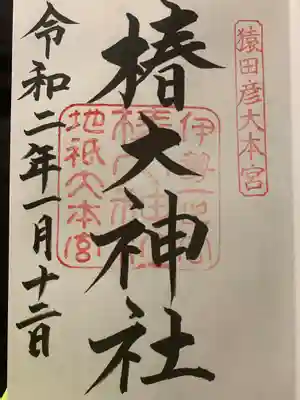 猿田彦大本宮
椿大神社
伊勢一宮
椿大神社
地祇大本宮
令和二年一月十二日